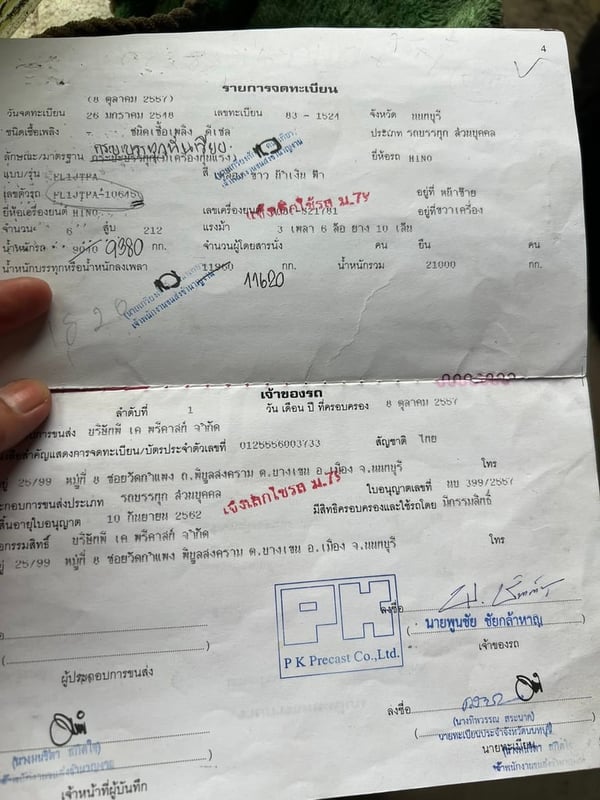 4
รายการจดทะเบียน
(8 ตุลาคม 2557)
วันจดทะเบียน 26 มกราคม 2548 เลขทะเบียน 83 - 1524 จังหวัด นนทบุรี
ชนิดเชื้อเพลิง ชนิดเชื้อเพลิง ดีเซล ประเภท รถบรรทุก ส่วนบุคคล
ลักษณะ/มาตรฐาน กระบะบรรทุก(มีเครื่องทุ่นแรง) ยี่ห้อรถ HINO
แบบ/รุ่น FL1JTPA สี ขาว น้ำเงิน ฟ้า
เลขตัวรถ FL1JTPA-10645 อยู่ที่ หน้าซ้าย
ยี่ห้อเครื่องยนต์ HINO เลขเครื่องยนต์ อยู่ที่ขวาเครื่อง
แจ้งเลิกใช้รถ ม.79
จำนวน 6 สูบ 212 แรงม้า 3 เพลา 6 ล้อ ยาง 10 เส้น
น้ำหนักรถ 9380 กก. จำนวนผู้โดยสารนั่ง คน ยืน คน
น้ำหนักบรรทุกหรือน้ำหนักลงเพลา 11960 กก. น้ำหนักรวม 21000 กก.
11620
เจ้าพนักงานขนส่งชำนาญงาน
เจ้าของรถ
ลำดับที่ 1 วัน เดือน ปี ที่ครอบครอง 8 ตุลาคม 2557
บการขนส่ง บริษัทพี เค พรีคาสท์ จำกัด
สำคัญแสดงการจดทะเบียน/บัตรประจำตัวเลขที่ 0125556003733 สัญชาติ ไทย
25/99 หมู่ที่ 8 ซอยวัดกำแพง ถ.พิบูลสงคราม ต.บางเขน อ.เมือง จ.นนทบุรี โทร
ะกอบการขนส่งประเภท รถบรรทุก ส่วนบุคคล ใบอนุญาตเลขที่ นบ 399/2557
แจ้งเลิกใช้รถ ม.79
้นอายุใบอนุญาต 10 กันยายน 2562 มีสิทธิครอบครองและใช้รถโดย มีกรรมสิทธิ์
อกรรมสิทธิ์ บริษัทพี เค พรีคาสท์ จำกัด
25/99 หมู่ที่ 8 ซอยวัดกำแพง พิบูลสงคราม ต.บางเขน อ.เมือง จ.นนทบุรี โทร
PK
P K Precast Co.,Ltd.
ลงชื่อ
นายพูนชัย ชัยกล้าหาญ
เจ้าของรถ
ผู้ประกอบการขนส่ง
ลงชื่อ
(นางทิพวรรณ สระนาค)
นายทะเบียนประจำจังหวัดนนทบุรี
นายทะเบียน
เจ้าพนักงานขนส่งชำนาญงาน
เจ้าหน้าที่ผู้บันทึก